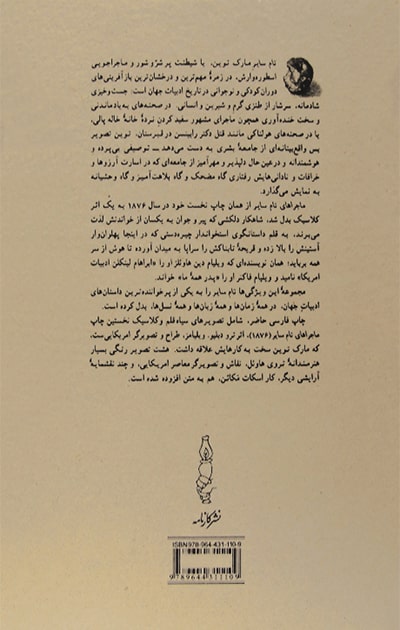 تام سایر مارک توین، با شیطنت پر شر و شور و ماجراجویی
اسطوره‌وارش، در زمرهٔ مهم‌ترین و درخشان‌ترین بازآفرینی‌های
دوران کودکی و نوجوانی در تاریخ ادبیات جهان است: جست‌وخیزی
شادمانه، سرشار از طنزی گرم و شیرین و انسانی. در صحنه‌های به‌یادماندنی
و سخت خنده‌آوری همچون ماجرای مشهور سفید کردن نردهٔ خانهٔ خاله پالی،
یا در صحنه‌های هولناکی مانند قتل دکتر رابینسن در قبرستان، توین تصویر
بس واقع‌بینانه‌ای از جامعهٔ بشری به دست می‌دهد — توصیفی بی‌پرده و
هوشمندانه و درعین حال دلپذیر و مهرآمیز از جامعه‌ای که در اسارت آرزوها و
خرافات و نادانی‌هایش رفتاری گاه مضحک و گاه بلاهت‌آمیز و گاه وحشیانه
به نمایش می‌گذارد.
ماجراهای تام سایر از همان چاپ نخست خود در سال ۱۸۷۶ به یک اثر
کلاسیک بدل شد، شاهکار دلکشی که پیر و جوان به یکسان از خواندنش لذت
می‌برند، به قلم داستانگوی استخواندار چیره‌دستی که در اینجا پهلوان‌وار
آستینش را بالا زده و قریحهٔ تابناکش را سراپا به میدان آورده تا هوش از سر
همه برباید؛ همان نویسنده‌ای که ویلیام دین هاولز او را «ابراهام لینکلن ادبیات
امریکا» نامید و ویلیام فاکنر او را «پدر همهٔ ما» خواند.
مجموعهٔ این ویژگی‌ها تام سایر را به یکی از پرخواننده‌ترین داستان‌های
ادبیات جهان، در همهٔ زمان‌ها و همهٔ زبان‌ها و همهٔ نسل‌ها، بدل کرده است.
چاپ فارسی حاضر، شامل تصویرهای سیاه‌قلم و کلاسیک نخستین چاپ
ماجراهای تام سایر (۱۸۷۶)، اثر ترو دبلیو. ویلیامز، طراح و تصویرگر امریکایی‌ست،
که مارک توین سخت به کارهایش علاقه داشت. هشت تصویر رنگی بسیار
هنرمندانهٔ تروی هاوئل، نقاش و تصویرگر معاصر امریکایی، و چند نقشمایهٔ
آرایشی دیگر، کار اسکات مک‌کاتن، هم به متن افزوده شده است.
نشر کارنامه
ISBN 978-964-431-110-9
9789644311109